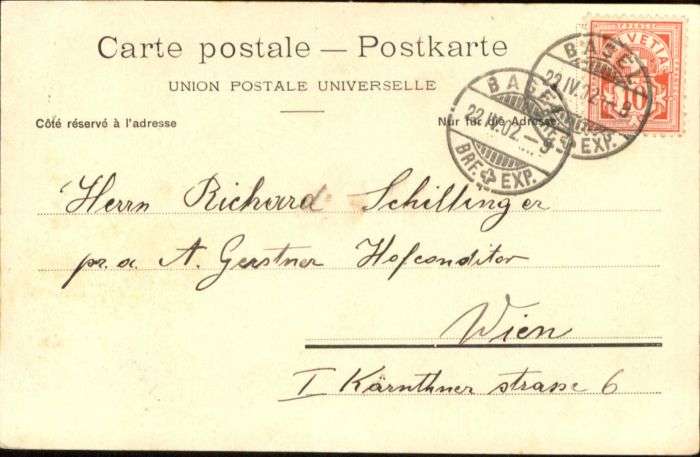 Carte postale — Postkarte
UNION POSTALE UNIVERSELLE
Côté réservé à l'adresse
Nur für die Adresse
HELVETIA
10
BASEL
22.IV.02.-9
EXP.
BASEL
22.IV.02.-9
BRF. EXP.
Herrn Richard Schillinger
pr. a. A. Gerstner Hofconditor
Wien
I Kärnthner strasse 6